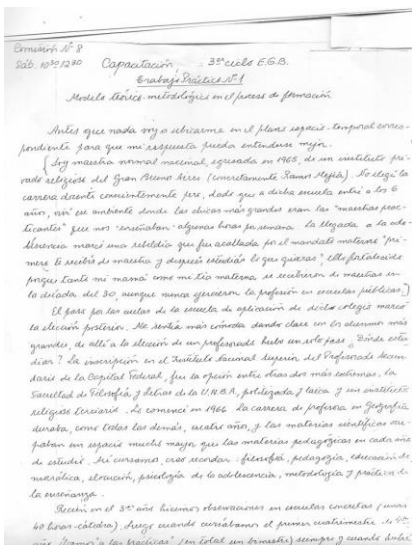 Comisión Nº 8
Sáb. 10³⁰/12³⁰ Capacitación 3er ciclo E.G.B.
Trabajo Práctico Nº 1
Modelo teórico-metodológico en el proceso de formación
Antes que nada voy a ubicarme en el plano espacio-temporal corres-
pondiente para que mi respuesta pueda entenderse mejor.
[Soy maestra normal nacional, egresada en 1965, de un instituto pri-
vado religioso del Gran Buenos Aires (concretamente Ramos Mejía). No elegí la
carrera docente conscientemente pero, dado que a dicha escuela entré a los 6
años, viví en ambiente donde las chicas más grandes eran las "maestras prac-
ticantes" que nos "enseñaban" algunas horas por semana. La llegada a la ado-
lescencia marcó una rebeldía que fue acallada por el mandato materno "pri-
mero te recibís de maestra y después estudiás lo que quieras", ello fortalecido
porque tanto mi mamá como mi tía materna se recibieron de maestras en
la década del 30, aunque nunca ejercieron la profesión en escuelas públicas.]
El paso por las aulas de la escuela de aplicación de dicho colegio marcó
la elección posterior. Me sentía más cómoda dando clase con los alumnos más
grandes, de allí a la elección de un profesorado hubo un solo paso. ¿Dónde estu-
diar? La inscripción en el Instituto Nacional Superior del Profesorado Secun-
dario de la Capital Federal, fue la opción entre otras dos más extremas, la
Facultad de Filosofía y Letras de la U.N.B.A, politizada y laica y un instituto
religioso terciario. Lo comencé en 1966. La carrera de profesora en Geografía
duraba, como todas las demás, cuatro años, y las materias científicas ocu-
paban un espacio mucho mayor que las materias pedagógicas en cada año
de estudio. Así cursamos, creo recordar: filosofía, pedagogía, educación de-
mocrática, elocución, psicología de la adolescencia, metodología y práctica de
la enseñanza.
Recién en el 3er año hicimos observaciones en escuelas concretas (unas
40 horas-cátedra), luego cuando cursábamos el primer cuatrimestre de 4to
año "íbamos a las prácticas" (en total un bimestre) siempre y cuando